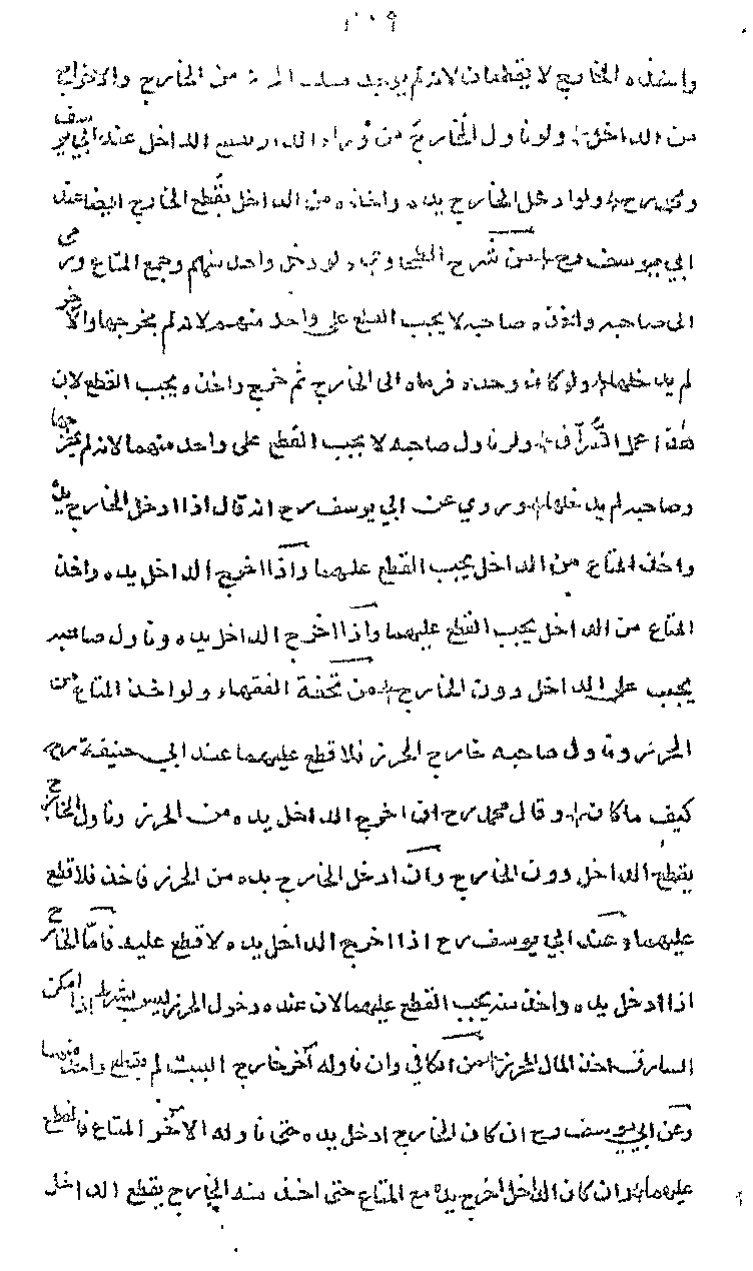 واخذه الخارج لا يقطعان لانه لم يوجد من الخارج والاخراج
من الداخل ولو ناول الخارج من وراء الدار يقطع الداخل عند ابي يوسف
ومحمد رح ولو ادخل الخارج يده واخذه من الداخل يقطع الخارج ايضا عند
ابي يوسف رح من شرح الطحاوي لو دخل واحد منهم وجمع المتاع ورمى
الى صاحبه واخذه صاحبه لا يجب القطع على واحد منهم لانه لم يخرجها والآخر
لم يدخلها ولو كان وحده فرماه الى الخارج ثم خرج واخذه يجب القطع لان
هذا عمل السراق ولو ناول صاحبه لا يجب القطع على واحد منهما لانه لم يخرجها
وصاحبه لم يدخلها وروي عن ابي يوسف رح انه قال اذا ادخل الخارج يده
واخذ المتاع من الداخل يجب القطع عليهما واذا اخرج الداخل يده واخذ
المتاع من الداخل يجب القطع عليهما واذا اخرج الداخل يده وناول صاحبه
يجب على الداخل دون الخارج من تحفة الفقهاء ولو اخذ المتاع من
الحرز وناول صاحبه خارج الحرز فلا قطع عليهما عند ابي حنيفة رح
كيف ما كان وقال محمد رح ان اخرج الداخل يده من الحرز وناول الخارج
يقطع الداخل دون الخارج وان ادخل الخارج يده من الحرز فاخذ فلا قطع
عليهما وعند ابي يوسف رح اذا اخرج الداخل يده لا قطع عليه فاما الخارج
اذا ادخل يده واخذ منه يجب القطع عليهما لان عنده دخول الحرز ليس بشرط اذا امكن
السارق اخذ المال المحرز من الكافي وان ناوله آخر خارج البيت لم يقطع واحد منهما
وعن ابي يوسف رح ان كان الخارج ادخل يده حتى ناوله الآخر المتاع فالقطع
عليهما وان كان الداخل اخرج يده مع المتاع حتى اخذ منه الخارج يقطع الداخل